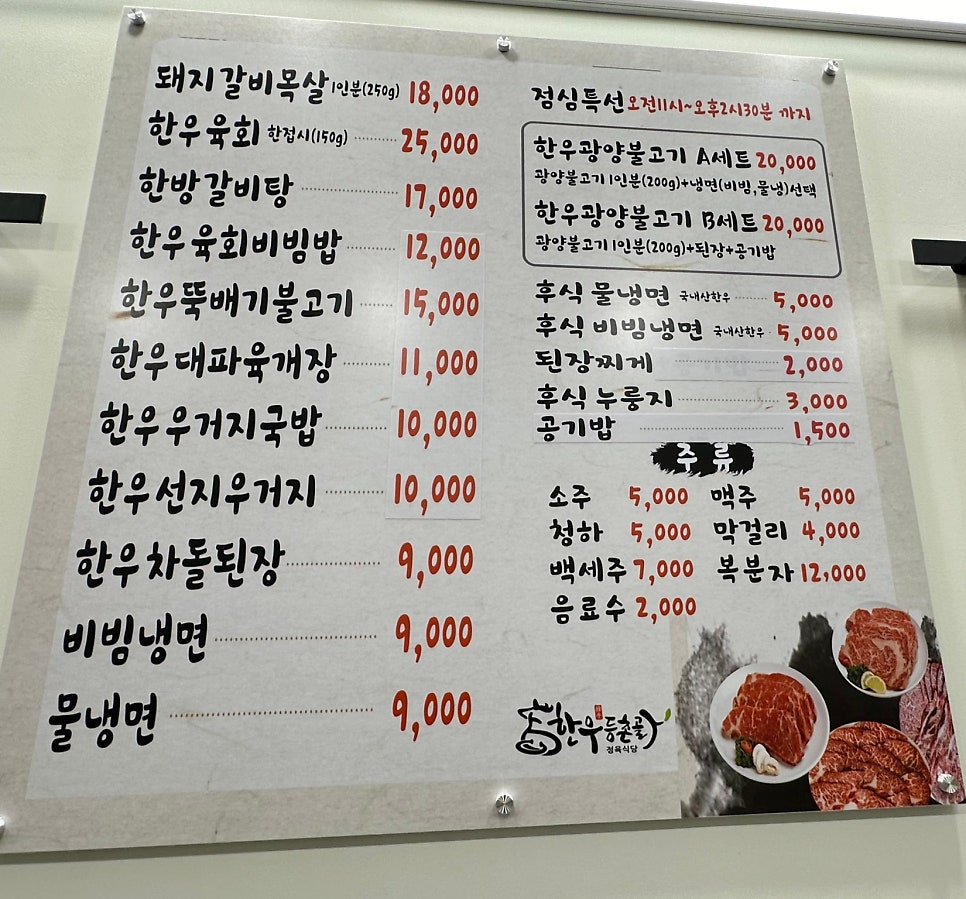 돼지갈비목살 1인분(250g) 18,000
한우육회 한접시(150g) 25,000
한방갈비탕 17,000
한우육회비빔밥 12,000
한우뚝배기불고기 15,000
한우대파육개장 11,000
한우우거지국밥 10,000
한우선지우거지 10,000
한우차돌된장 9,000
비빔냉면 9,000
물냉면 9,000
점심특선 오전11시~오후2시30분 까지
한우광양불고기 A세트 20,000
광양불고기 1인분(200g)+냉면(비빔,물냉)선택
한우광양불고기 B세트 20,000
광양불고기 1인분(200g)+된장+공기밥
후식 물냉면 국내산한우 5,000
후식 비빔냉면 국내산한우 5,000
된장찌게 2,000
후식 누룽지 3,000
공기밥 1,500
주류
소주 5,000 맥주 5,000
청하 5,000 막걸리 4,000
백세주 7,000 복분자 12,000
음료수 2,000
한우등촌골
정육식당